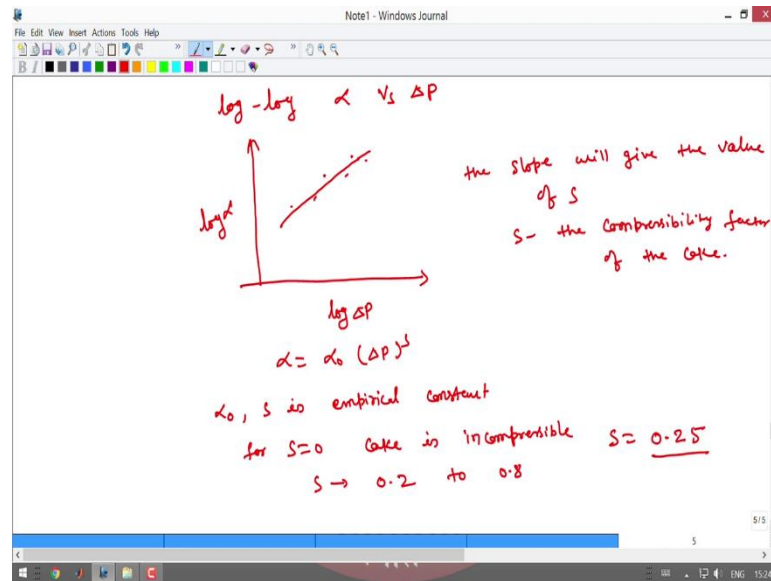 Note1 - Windows Journal
File Edit View Insert Actions Tools Help
B I
log-log α Vs ΔP
log α
log ΔP
the slope will give the value
of S
S- the compressibility factor
of the cake.
α = α₀ (ΔP)ˢ
α₀, S is empirical constant
for S=0 cake is incompressible S= 0.25
S → 0.2 to 0.8
5/5
5
ENG 15:24